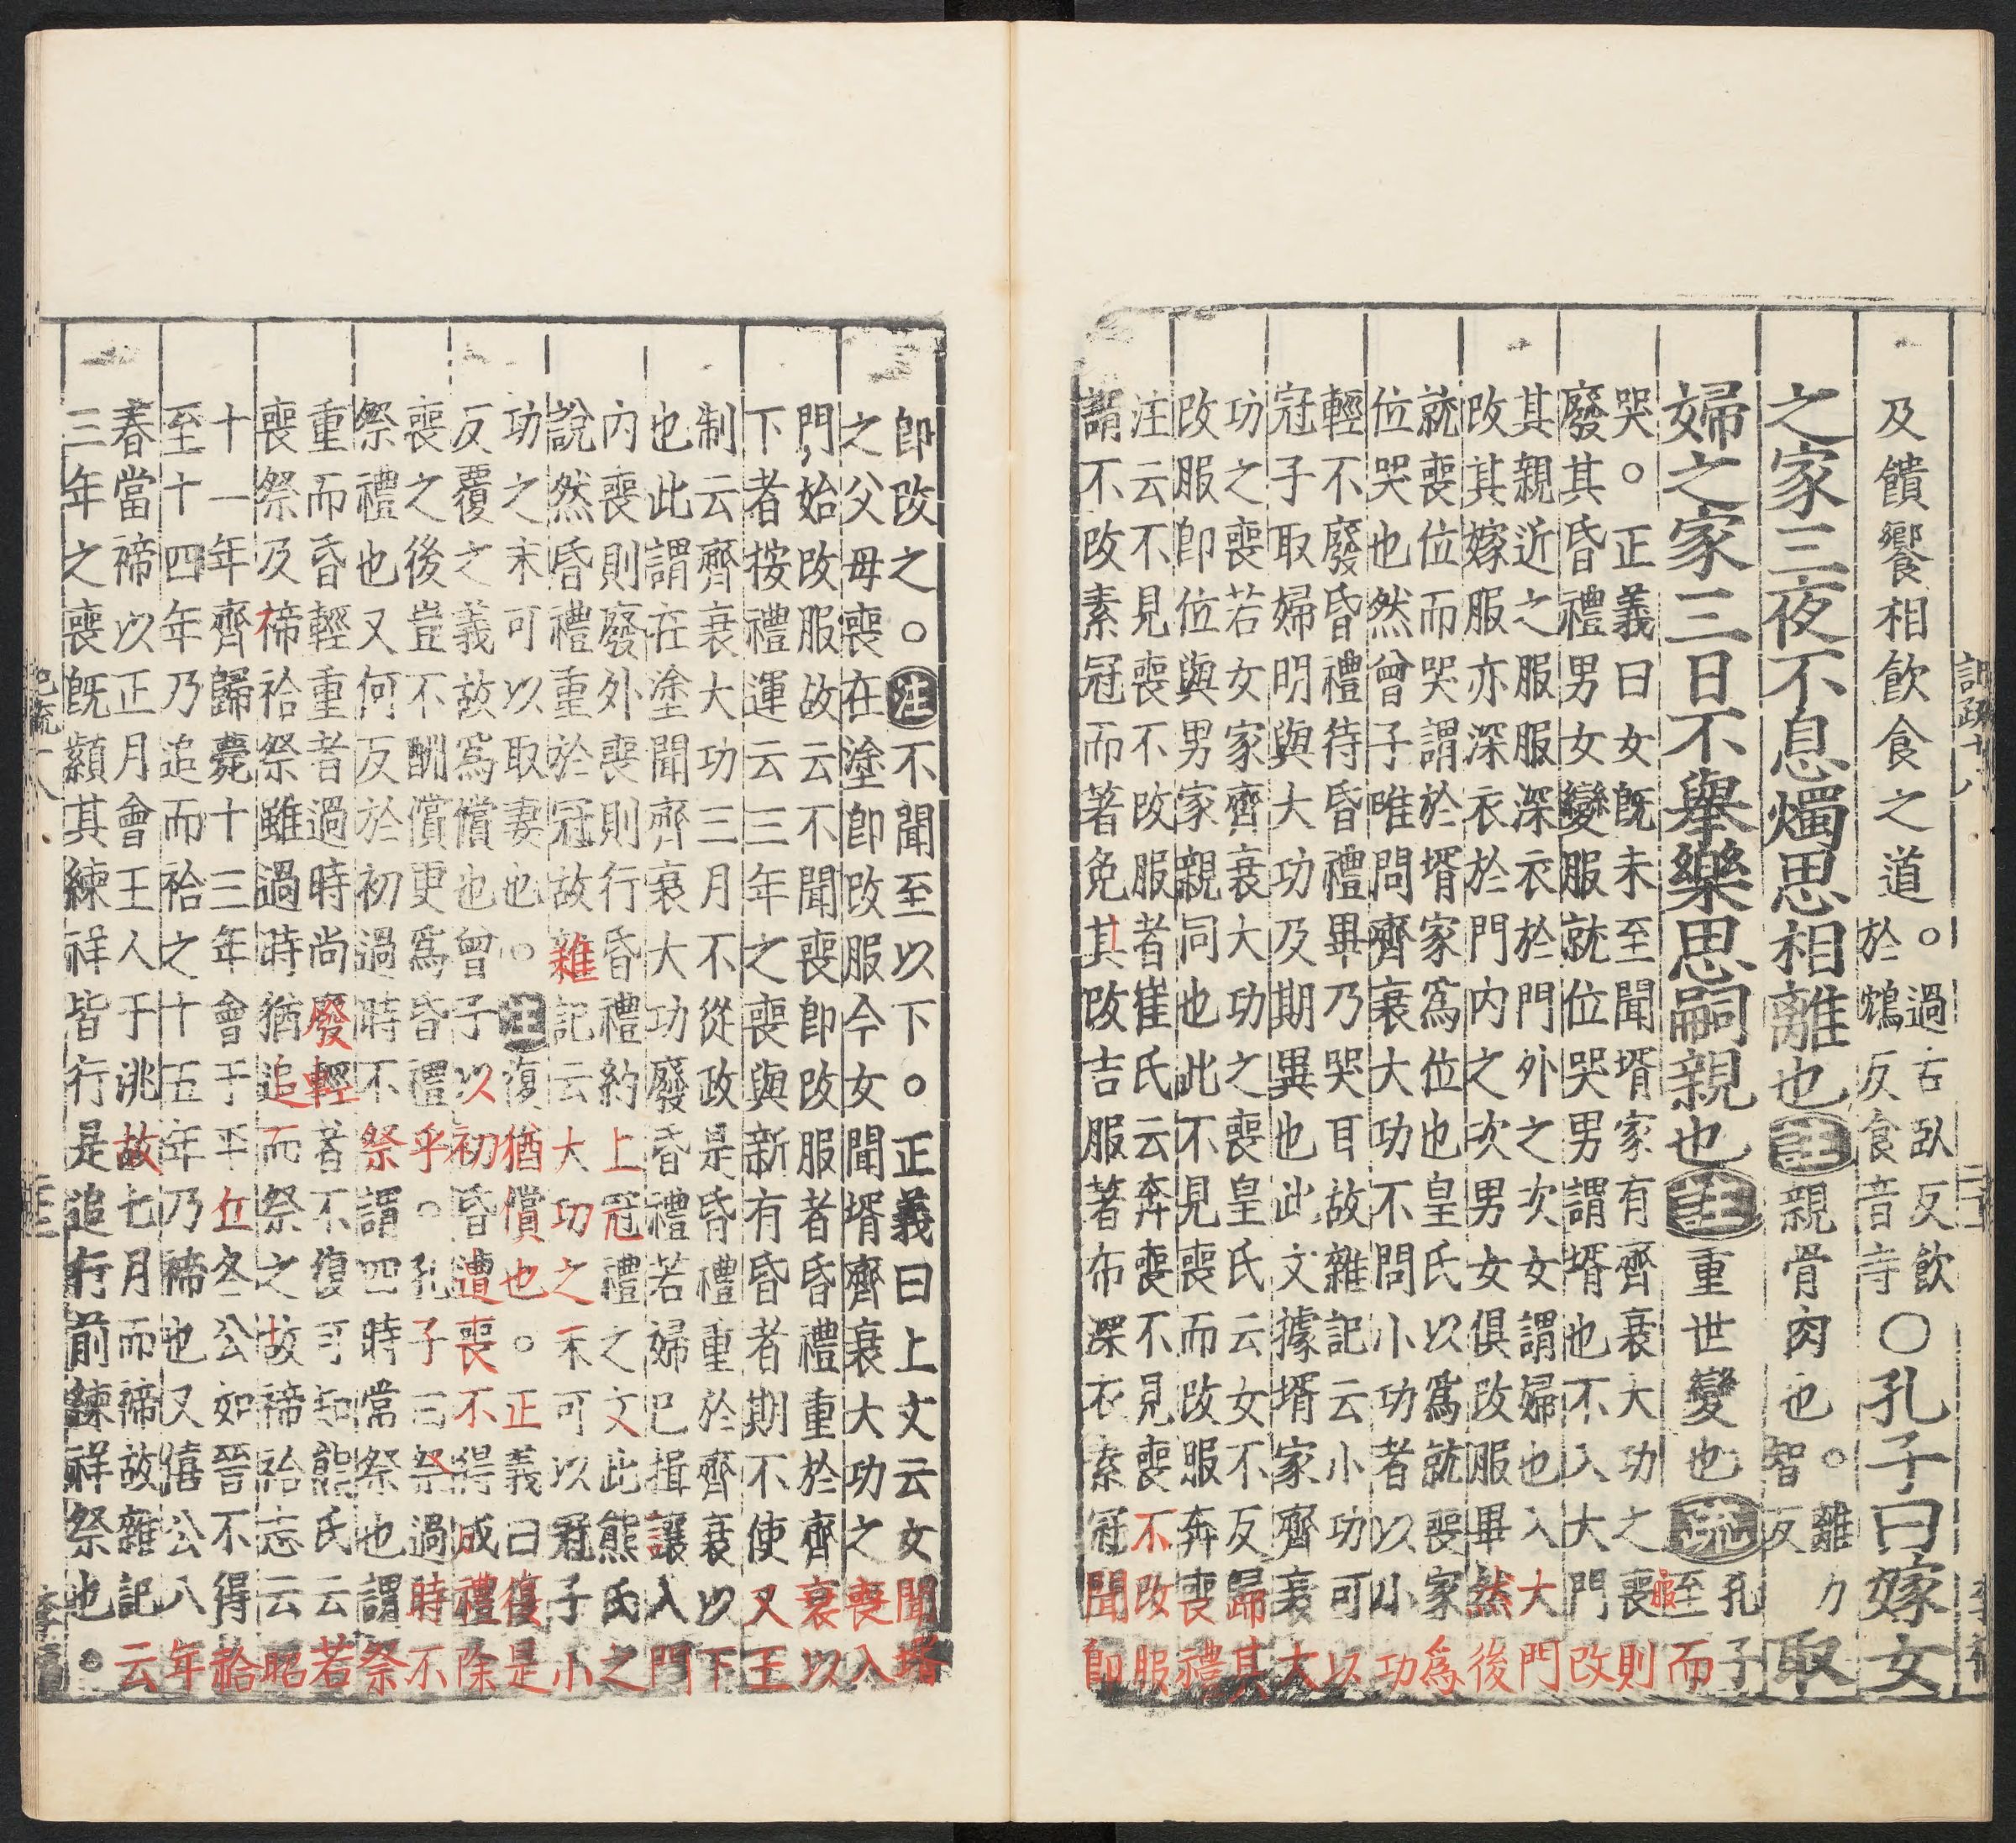 及饋饗相飲食之道。過古臥反飲於鴆反食音寺○孔子曰嫁女
之家三夜不息燭思相離也注親骨肉也。離力智反取
婦之家三日不舉樂思嗣親也注重世變也疏孔子至而
哭。正義曰女旣未至聞壻家有齊衰大功之喪則
廢其昏禮男女變服就位哭男謂壻也不入大門改
其親近之服服深衣於門外之次女謂婦也入大門
改其嫁服亦深衣於門內之次男女俱改服畢然後
就喪位而哭謂於壻家爲位也皇氏以爲就喪家爲
位哭也然曾子唯問齊衰大功不問小功者以小功
輕不廢昏禮待昏禮畢乃哭耳故雜記云小功可以
冠子取婦明與大功及期異也此文據壻家齊衰大
功之喪若女家齊衰大功之喪皇氏云女不反歸其
改服卽位與男家親同也此不見喪而改服奔喪禮
注云不見喪不改服者崔氏云奔喪不見喪不改服
謂不改素冠而著免其改吉服著布深衣素冠聞卽
卽改之。注不聞至以下。正義曰上文云女聞壻
之父母喪在塗卽改服今女聞壻齊衰大功之喪入
門始改服故云不聞喪卽改服者昏禮重於齊衰以
下者按禮運云三年之喪與新有昏者期不使又王
制云齊衰大功三月不從政是昏禮重於齊衰以下
也此謂在塗聞齊衰大功廢昏禮若婦已揖讓入門
內喪則廢外喪則行昏禮約上冠禮之文此熊氏之
說然昏禮重於冠故雜記云大功之末可以冠子小
功之末可以取妻也。注復猶償也。正義曰復是
反覆之義故爲償也曾子以初昏遭喪不得成禮除
喪之後豈不酬償更爲昏禮乎。孔子曰祭過時不
祭禮也又何反於初過時不祭謂四時常祭也謂祭
重而昏輕重者過時尚廢輕者不復可知熊氏云若
喪祭及禘祫祭雖過時猶追而祭之故禘祫志云昭
十一年齊歸薨十三年會于平丘冬公如晉不得祫
至十四年乃追而祫之十五年乃禘也又僖公八年
春當禘以正月會王人于洮故七月而禘故雜記云
三年之喪旣顈其練祥皆行是追行前練祥祭也。